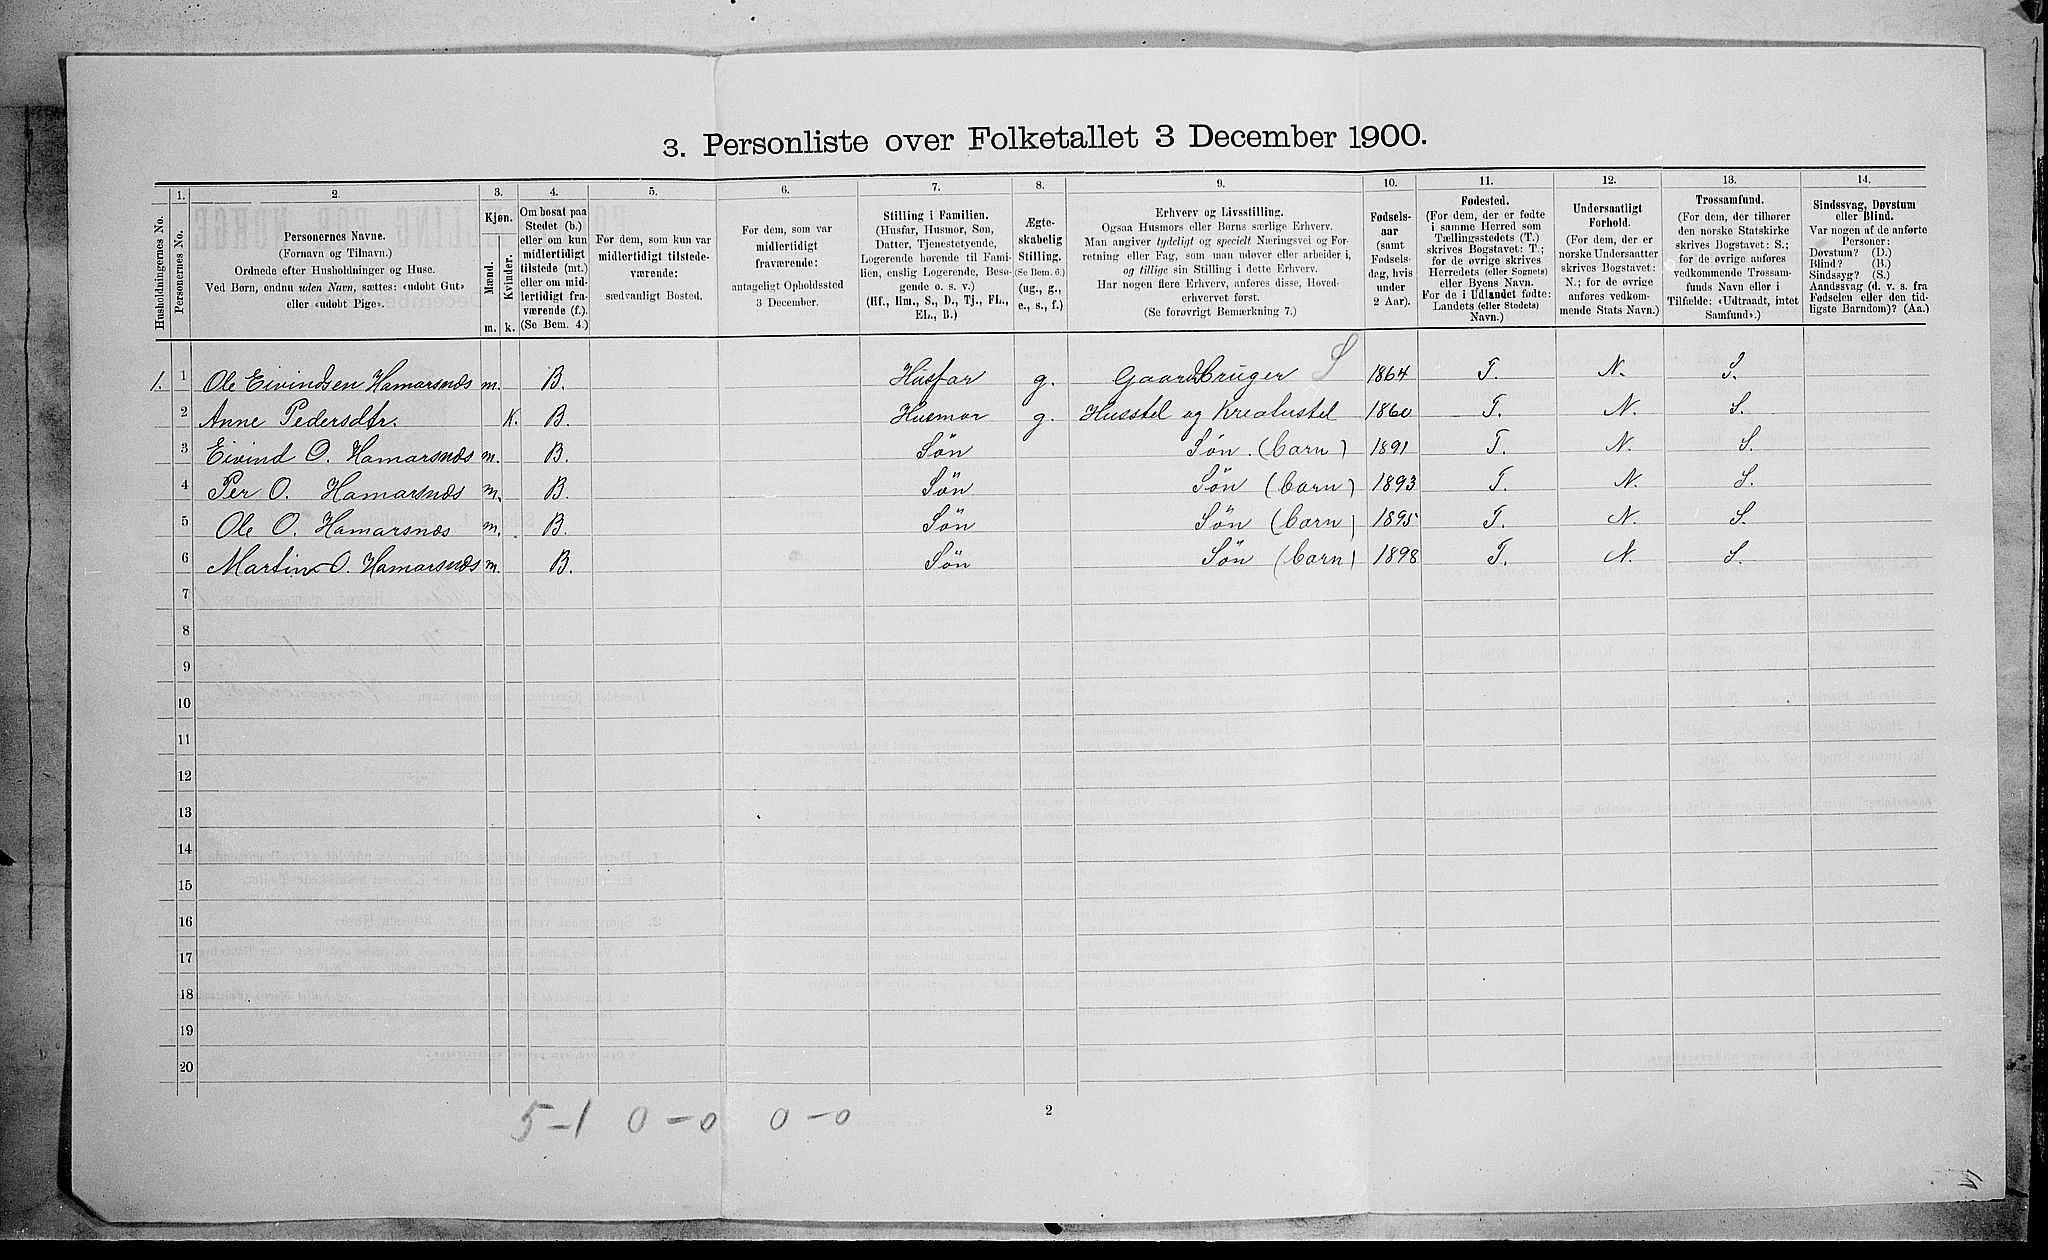 3. Personliste over Folketallet 3 December 1900.
Husholdningernes No.
1.
Personernes No.
2.
Personernes Navne.
(Fornavn og Tilnavn.)
Ordnede efter Husholdninger og Huse.
Ved Børn, endnu uden Navn, sættes: «udøbt Gut»
eller «udøbt Pige».
3.
Kjøn.
Mænd.
Kvinder.
m.
k.
4.
Om bosat paa
Stedet (b.)
eller om kun
midlertidigt
tilstede (mt.)
eller om mid-
lertidigt fra-
værende (f.).
(Se Bem. 4.)
5.
For dem, som kun var
midlertidigt tilstede-
værende:
sædvanligt Bosted.
6.
For dem, som var
midlertidigt
fraværende:
antageligt Opholdssted
3 December.
7.
Stilling i Familien.
(Husfar, Husmor, Søn,
Datter, Tjenestetyende,
Logerende hørende til Fami-
lien, enslig Logerende, Besø-
gende o. s. v.)
(Hf., Hm., S., D., Tj., FL.,
EL., B.)
8.
Ægte-
skabelig
Stilling.
(Se Bem. 6.)
(ug., g.,
e., s., f.)
9.
Erhverv og Livsstilling.
Ogsaa Husmors eller Børns særlige Erhverv.
Man angiver tydeligt og specielt Næringsvei og For-
retning eller Fag, som man udøver eller arbeider i,
og tillige sin Stilling i dette Erhverv.
Har nogen flere Erhverv, anføres disse, Hoved-
erhvervet først.
(Se forøvrigt Bemærkning 7.)
10.
Fødsels-
aar
(samt
Fødsels-
dag, hvis
under
2 Aar).
11.
Fødested.
(For dem, der er fødte
i samme Herred som
Tællingsstedets (T.)
skrives Bogstavet: T.;
for de øvrige skrives
Herredets (eller Sognets)
eller Byens Navn.
For de i Udlandet fødte:
Landets (eller Stedets)
Navn.)
12.
Undersaatligt
Forhold.
(For dem, der er
norske Undersaatter
skrives Bogstavet:
N.; for de øvrige
anføres vedkom-
mende Stats Navn.)
13.
Trossamfund.
(For dem, der tilhører
den norske Statskirke
skrives Bogstavet: S.;
for de øvrige anføres
vedkommende Trossam-
funds Navn eller i
Tilfælde: «Udtraadt, intet
Samfund».)
14.
Sindssvag, Døvstum
eller Blind.
Var nogen af de anførte
Personer:
Døvstum? (D.)
Blind? (B.)
Sindssyg? (S.)
Aandssvag (d. v. s. fra
Fødselen eller den tid-
ligste Barndom)? (Aa.)
1. 1 Ole Eivindsen Hamarsnæs m. B. Husfar g. Gaardbruger S 1864 T. N. S.
2 Anne Pedersdtr. K. B. Husmor g. Husstel og Kreaturstel 1860 T. N. S.
3 Eivind O. Hamarsnæs m. B. Søn Søn (barn) 1891 T. N. S.
4 Per O. Hamarsnæs m. B. Søn Søn (barn) 1893 T. N. S.
5 Ole O. Hamarsnæs m. B. Søn Søn (barn) 1895 T. N. S.
6 Martin O. Hamarsnæs m. B. Søn Søn (barn) 1898 T. N. S.
7
8
9
10
11
12
13
14
15
16
17
18
19
20
5-1 0-0 0-0
2